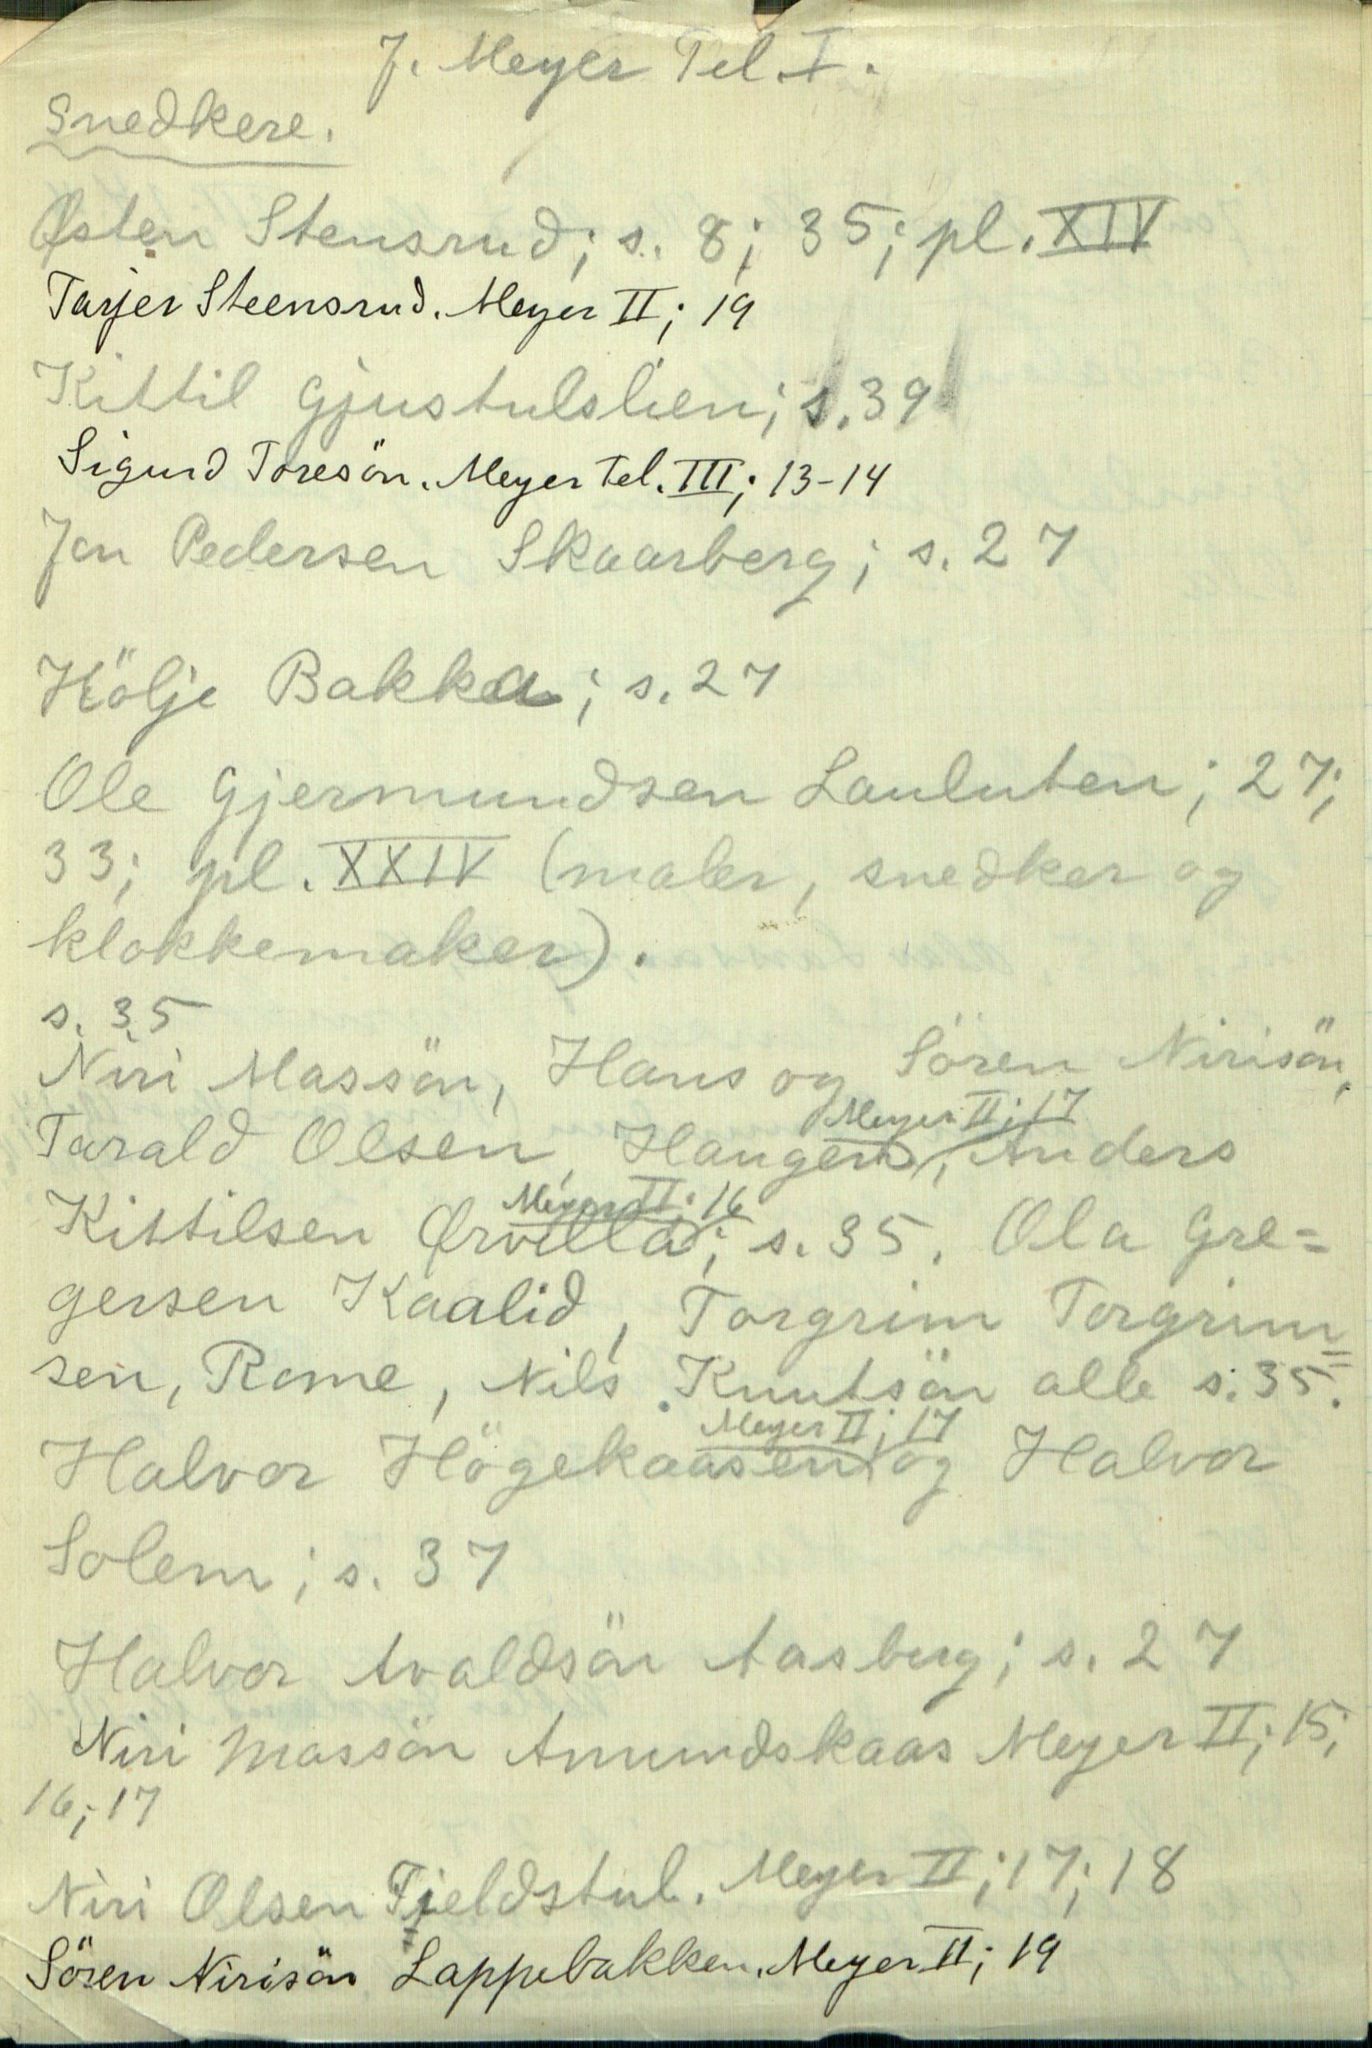 J. Meyer Tel. I.
Snedkere.
Østen Stensrud; s. 8; 35; pl. XIV
Tarjer Steensrud. Meyer II; 19
Kittil Gjustulslien; s. 39
Sigurd Toresön. Meyer Tel. III; 13-14
Jon Pedersen Skaarberg; s. 27
Hölje Bakka; s. 27
Ole Gjermundsen Lauluten; 27;
33; pl. XXIV (maler, snedker og
klokkemaker).
s. 35
Niri Massön, Hans og Sören Nirisön,
Meyer II; 17
Tarald Olsen, Haugen, Anders
Meyer II; 16
Kittilsen Ørvella; s. 35. Ola Gre=
gersen Kaalid, Torgrim Torgrim=
sen, Rome, Nils Knutsön alle s. 35.
Meyer II; 17
Halvor Högekaasen og Halvor
Solem; s. 37
Halvor Avaldsön Aasberg; s. 27
Niri Massön Amundskaas Meyer II; 15;
16; 17
Niri Olsen Fjeldstul. Meyer II; 17; 18
Sören Nirisön Lappebakken. Meyer II; 19